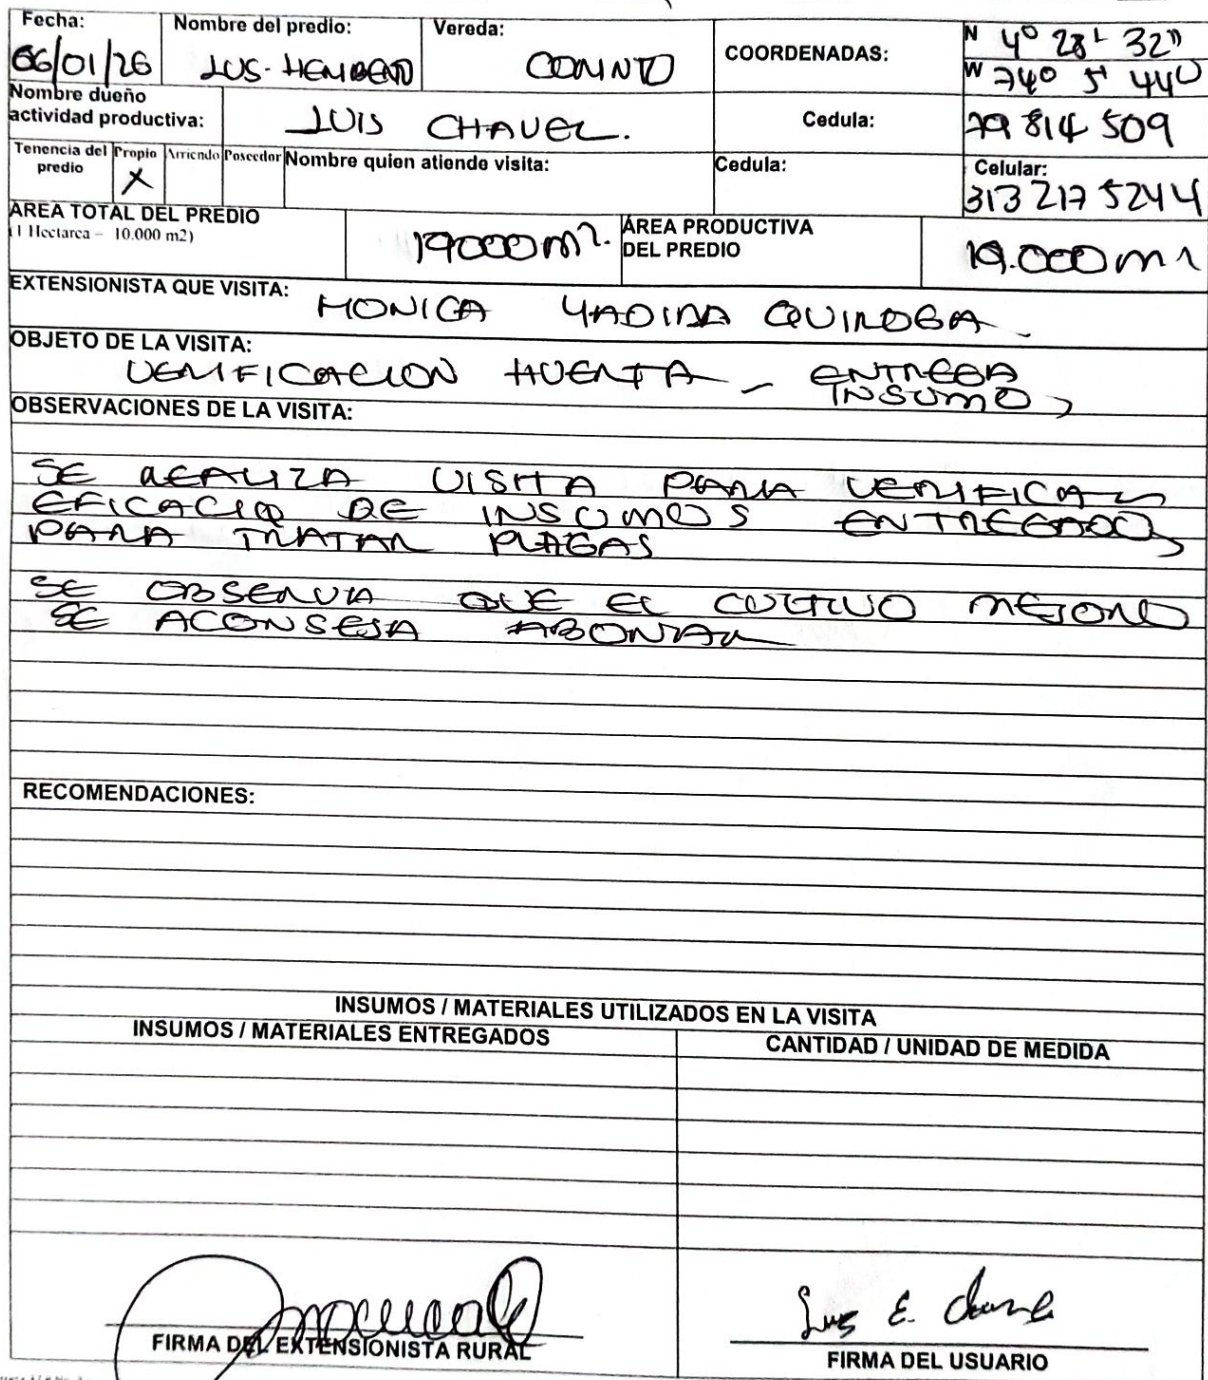 Fecha: Nombre del predio: Vereda: COORDENADAS: N 4° 28' 32"
06/01/26 LUS-HEMBERTO CORINTO W 74° 5' 44"
Nombre dueño actividad productiva: LUIS CHAVEZ. Cedula: 79 814 509
Tenencia del predio Propio X Arriendo Poseedor Nombre quien atiende visita: Cedula: Celular: 313 217 5244
AREA TOTAL DEL PREDIO
(1 Hectarea – 10.000 m2) 19000 m2. ÁREA PRODUCTIVA DEL PREDIO 19.000 m2
EXTENSIONISTA QUE VISITA: MONICA YADIRA QUIROGA
OBJETO DE LA VISITA:
VERIFICACION HUERTA - ENTREGA INSUMOS
OBSERVACIONES DE LA VISITA:
SE REALIZA VISITA PARA VERIFICAR
EFICACIA DE INSUMOS ENTREGADOS
PARA TRATAR PLAGAS
SE OBSERVA QUE EL CULTIVO MEJORO
SE ACONSEJA ABONAR
RECOMENDACIONES:
INSUMOS / MATERIALES UTILIZADOS EN LA VISITA
INSUMOS / MATERIALES ENTREGADOS CANTIDAD / UNIDAD DE MEDIDA
Luis E. Chavez
FIRMA DEL EXTENSIONISTA RURAL FIRMA DEL USUARIO